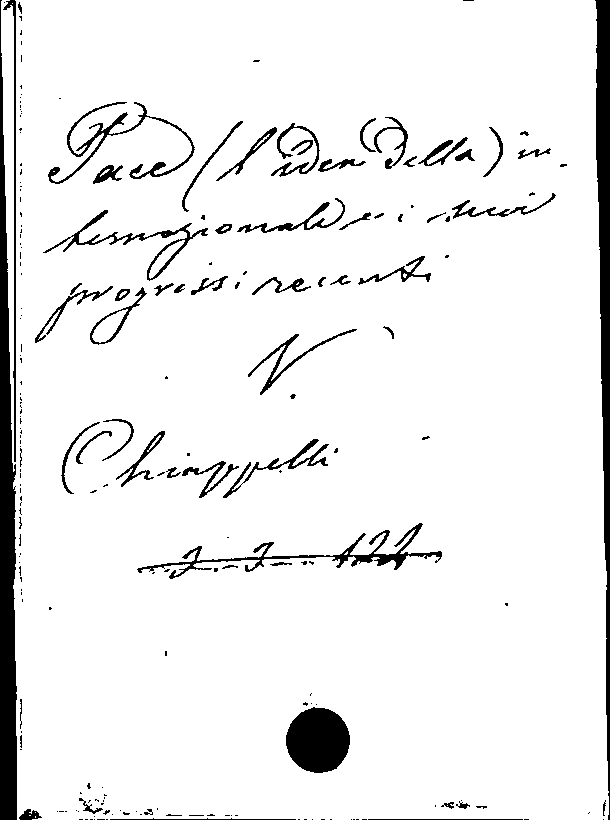 Pace (l'idea della) in-
ternazionale e i suoi
progressi recenti
V.
Chiappelli